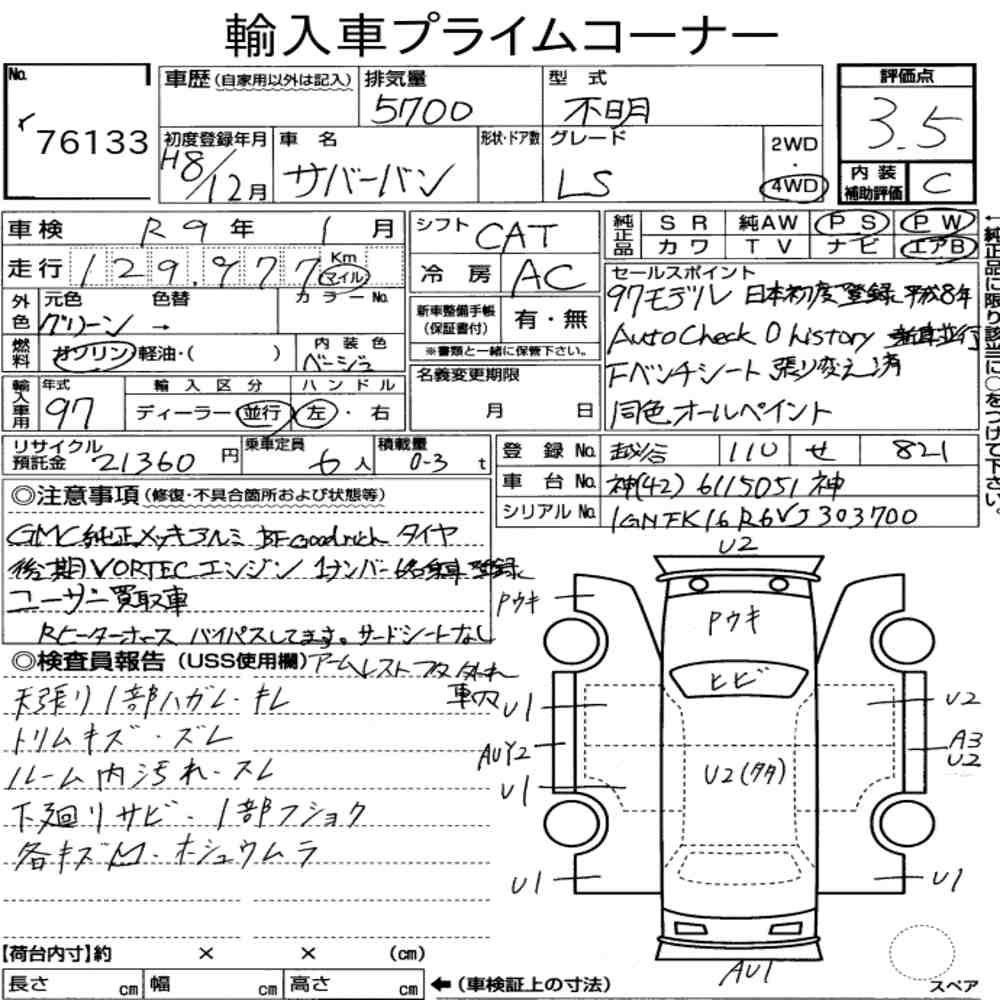 輸入車プライムコーナー
No.
76133
車歴 (自家用以外は記入)
排気量
5700
型式
不明
評価点
3.5
初度登録年月
H8/12月
車名
サバーバン
形状・ドア数
グレード
LS
2WD
・
4WD
内装
補助評価
C
車検 R9年 1月
走行 129,977 Km
マイル
外色
元色 色替 カラーNo.
グリーン →
燃料
ガソリン 軽油・( )
内装色
ベージュ
輸入車用
年式
97
輸入区分
ディーラー 並行
ハンドル
左・右
シフト CAT
冷房 AC
新車整備手帳
(保証書付)
有・無
※書類と一緒に保管下さい。
名義変更期限
月 日
純正品
SR 純AW PS PW
カワ TV ナビ エアB
←純正品に限り該当に○をつけて下さい。
セールスポイント
97モデル 日本初度登録 平成8年
AutoCheck 0 history 新車並行
Fベンチシート 張り変え済
同色オールペイント
リサイクル
預託金
21360円
乗車定員
6人
積載量
0-3 t
登録No. 越谷 110 せ 821
車台No. 神(42)6115051神
シリアルNo. 1GNFK16R6VJ303700
◎注意事項 (修復・不具合箇所および状態等)
GMC純正メッキアルミ BFGoodrich タイヤ
後期VORTECエンジン 1ナンバー 登録
ユーザー買取車
Rヒーターホース バイパスしてます。サードシートなし
◎検査員報告 (USS使用欄) アームレストフタ外れ
車内
天張り1部ハガレ・キレ
トリムキズ・ズレ
ルーム内汚れ・スレ
下廻りサビ・1部フショク
各キズ凹・ホシュウムラ
U2
Pウキ
Pウキ
ヒビ
U1
U2
AUY2
A3
U2
U2(タタ)
U1
U1
U1
AU1
【荷台内寸】約 × × (cm)
長さ cm 幅 cm 高さ cm ←(車検証上の寸法)
スペア